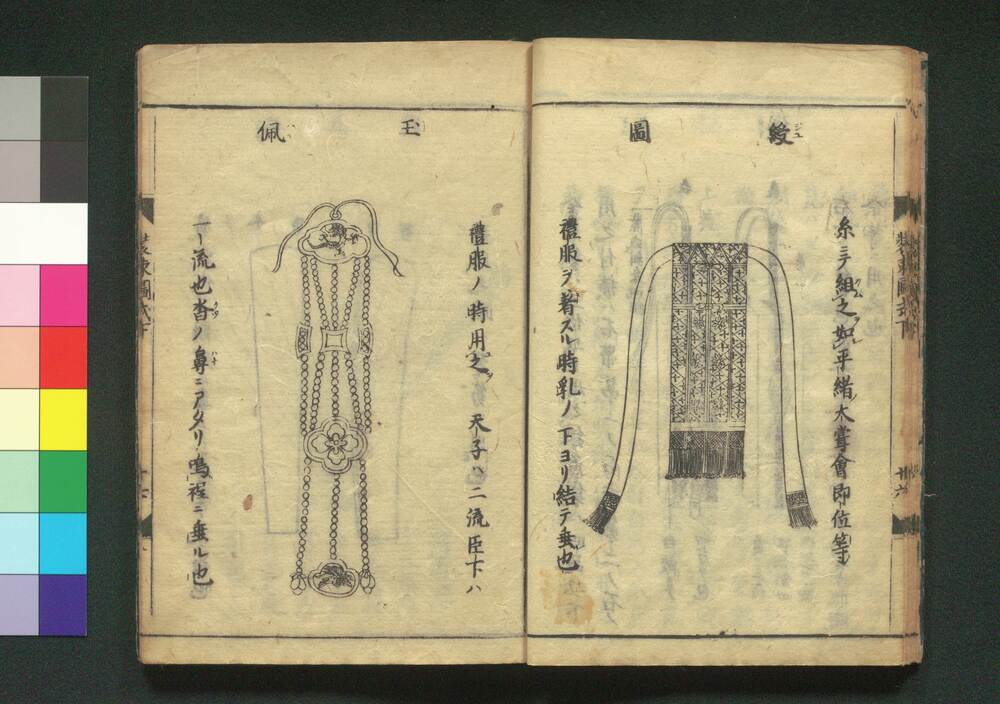 綬圖
糸ニテ組之如平緒大嘗會即位等
禮服ヲ著スル時乳ノ下ヨリ結テ垂也
玉佩
禮服ノ時用之天子ハ二流臣下ハ
一流也沓ノ鼻ニアタリ鳴程ニ垂ル也